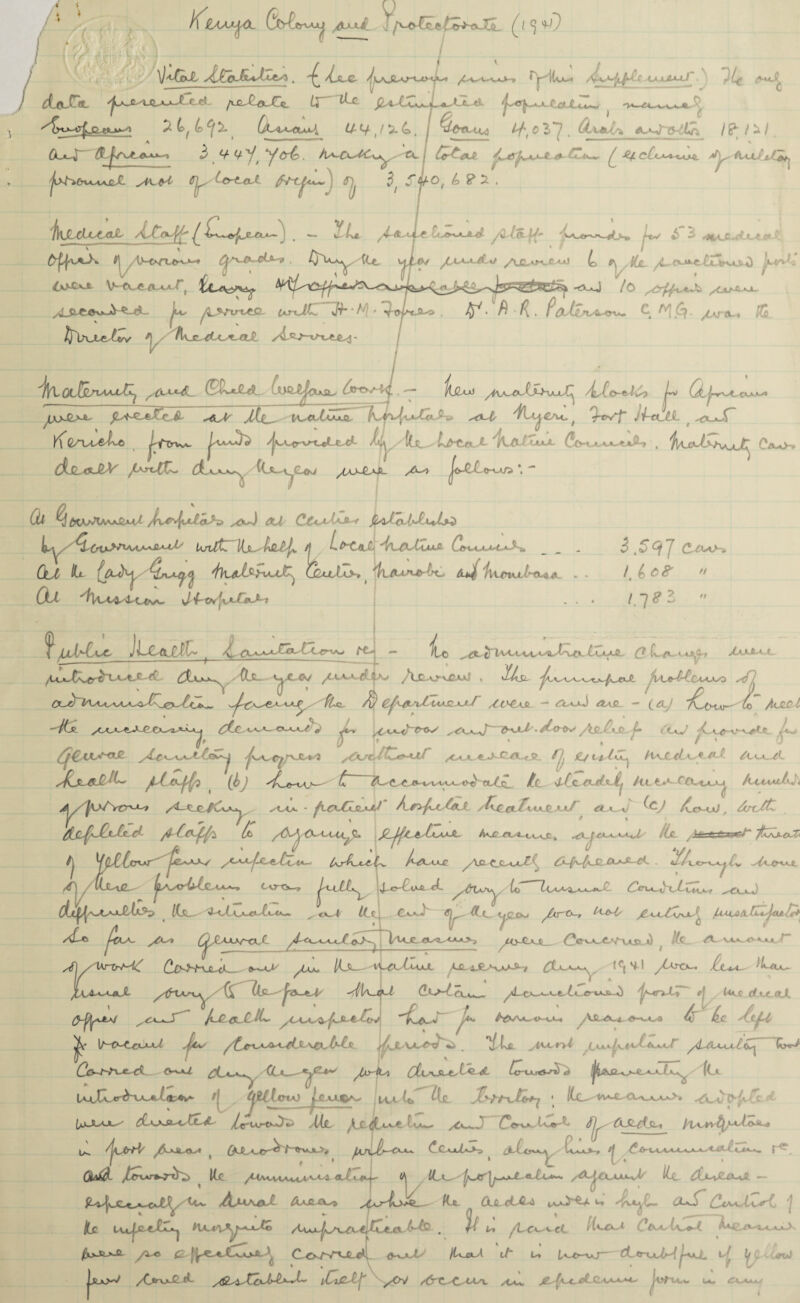 Kenya Colony and Protectorate (1941)
Vital Statistics. (See previous issues of this Supplement.) The only
data presented relate to the estimated population, namely
Europeans 26,692. Asians 44,126. Goans 4,037. Arabs and others 18,121
and Africans 3,447,706. making a total population (exclusive of military
personnel not of local origin) of 3,540,682.
Medical Staff (European). - The sanctioned staff provides for 53 medical
officers of various grades. During the year under review 6 of the sanctioned posts
were vacant, leaving and 10 officers were
seconded for service with H.M. Forces. Dr. A. R. Paterson C.M.G. was the
Director of Medical Services.
Maternity and Child Welfare Work. - New maternity blocks for Africans
were erected at the native hospitals at Nyeri, Fort Hall, and
Kericho from funds provided by the Local Native Councils. Maternity cases
dealt with during the year were as follows:-
At Government hospitals and at centres established
by Government with the help of Local Native Councils - - - 3,597 cases
At the Lady Grigg Maternity Centres, Nairobi and Mombasa . . 1,608 "
At Mission Hospitals . . . 1,783 "
Public Health, Sanitation etc - No administrative changes were
introduced during the year under review. The principal problems of
administration facing the Department were - and are - (a) how to meet
the increasing demands for indoor and out-door relief and provide for
general sanitary progress without increase of existing medical and
health staffs, (b) how to accommodate the steadily increasing numbers
of persons seeking in-patient hospital treatment, and (c) how, with
depleted staffs to organise effective measures against the threat
of yellow fever infection which have recently appeared. Though none
of these problems was fully solved owing to unusual conditions and
difficulties, the situation at the end of the year was not entirely unsatisfactory
So far as general sanitary measures were concerned, the amount
of work carried out in the native reserves during 1941 was less than
usual owing to the fact that certain sanctioned posts of medical
officer and health inspector had for various reasons to be left
vacant for considerable periods. The most important sanitary work
carried out during the year was directed towards preventing the
introduction of yellow fever into the territory; the measures adopted
were directed towards the reduction and control of aedes mosquitoes
in port areas, aerodromes, urban centres, along lines of communication etc
and towards the immunisation of the population against the disease -
especially in rural areas where the aedes index is high and control of
the infecting mosquito impracticable. It is said that control measures
were so effectively carried out that it is now doubtful if yellow
fever could establish itself or occur in epidemic form in any